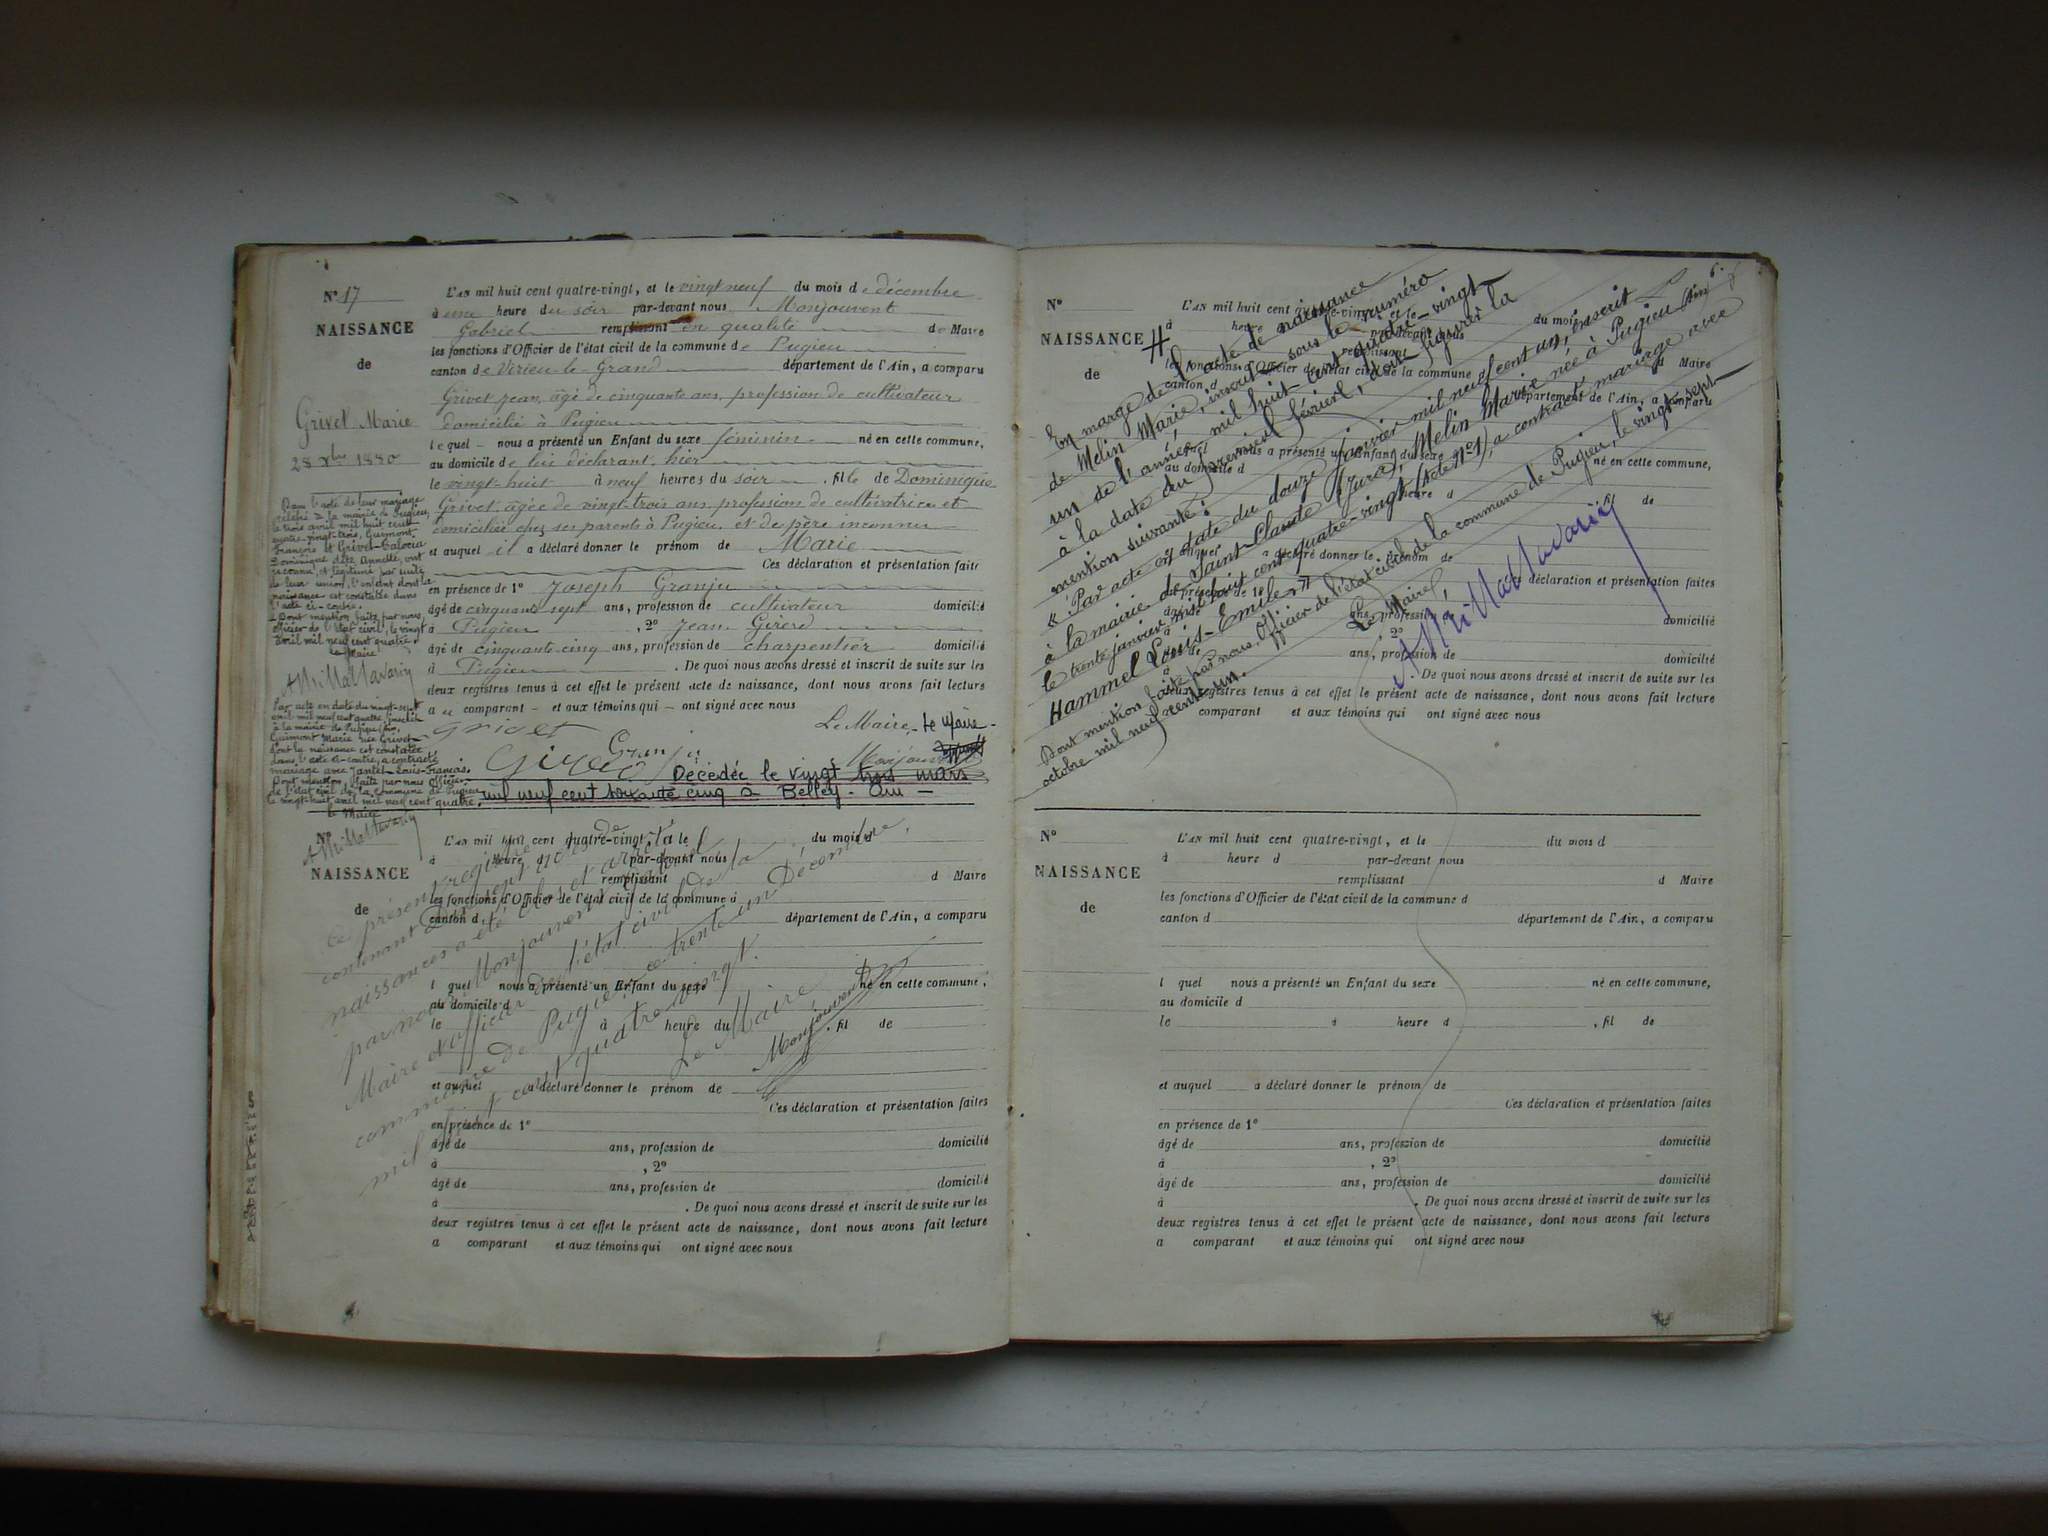 N° 17
NAISSANCE
de
Grivet Marie
28 Xbre 1880
L'AN mil huit cent quatre-vingt, et le vingt neuf du mois de décembre
à une heure du soir par-devant nous Monjouvent
Gabriel remplissant en qualité de Maire
les fonctions d'Officier de l'état civil de la commune de Pugieu
canton de Virieu-le-Grand département de l'Ain, a comparu
Grivet Jean, âgé de cinquante ans, profession de cultivateur
domicilié à Pugieu
lequel nous a présenté un Enfant du sexe féminin né en cette commune,
au domicile de lui déclarant, hier
le vingt-huit à neuf heures du soir, fille de Dominique
Grivet, âgée de vingt-trois ans, profession de cultivatrice et
domiciliée chez ses parents à Pugieu, et de père inconnu
et auquel il a déclaré donner le prénom de Marie
Ces déclaration et présentation faites
en présence de 1° Joseph Granju
âgé de cinquante sept ans, profession de cultivateur domicilié
à Pugieu, 2° Jean Girerd
âgé de cinquante cinq ans, profession de charpentier domicilié
à Pugieu. De quoi nous avons dressé et inscrit de suite sur les
deux registres tenus à cet effet le présent acte de naissance, dont nous avons fait lecture
au comparant et aux témoins qui ont signé avec nous
Le Maire, Le Maire
Grivet
Granju
Monjouvent
Décédée le vingt trois mars
mil neuf cent soixante cinq à Belley - Ain -
Dans l'acte de leur mariage
célébré à la mairie de Pugieu,
le trois avril mil huit cent
quatre-vingt-trois, Guimont
François et Grivet-Calocia
Dominique dite Annette, ont
reconnu, et légitimé par suite
de leur union, l'enfant dont la
naissance est constatée dans
l'acte ci-contre.
Dont mention faite par nous
officier de l'état civil, le vingt
avril mil neuf cent quatre.
Le Maire
Par acte en date du vingt-sept
avril mil neuf cent quatre, inscrit
à la mairie de Pugieu (Ain),
Guimont Marie née Grivet
dont la naissance est constatée
dans l'acte ci-contre, a contracté
mariage avec Jantet-Louis-François.
Dont mention faite par nous Officier
de l'état civil de la commune de Pugieu
le vingt-huit avril mil neuf cent quatre.
Le Maire
N°
NAISSANCE
de
L'AN mil huit cent quatre-vingt, et le du mois d
à heure d par-devant nous
remplissant d Maire
les fonctions d'Officier de l'état civil de la commune d
canton d département de l'Ain, a comparu
l quel nous a présenté un Enfant du sexe né en cette commune,
au domicile d
le à heure du, fil de
et auquel a déclaré donner le prénom de
Ces déclaration et présentation faites
en présence de 1°
âgé de ans, profession de domicilié
à , 2°
âgé de ans, profession de domicilié
à . De quoi nous avons dressé et inscrit de suite sur les
deux registres tenus à cet effet le présent acte de naissance, dont nous avons fait lecture
a comparant et aux témoins qui ont signé avec nous
Ce présent registre de
contenant Dix sept actes de
naissances a été clos et arrêté
par nous Monjouvent Gabriel
Maire et officier de l'état civil de la
commune de Pugieu, ce trente un Décembre,
mil huit cent quatre vingt.
Le Maire
Monjouvent
6.
N°
NAISSANCE
de
L'AN mil huit cent quatre-vingt, et le du mois d
à heure d par-devant nous
remplissant d Maire
les fonctions d'Officier de l'état civil de la commune d
canton d département de l'Ain, a comparu
l quel nous a présenté un Enfant du sexe né en cette commune,
au domicile d
le à heure d , fil de
et auquel a déclaré donner le prénom de
Ces déclaration et présentation faites
en présence de 1°
âgé de ans, profession de domicilié
à , 2°
âgé de ans, profession de domicilié
à . De quoi nous avons dressé et inscrit de suite sur les
deux registres tenus à cet effet le présent acte de naissance, dont nous avons fait lecture
a comparant et aux témoins qui ont signé avec nous
En marge de l'acte de naissance
de Melin Marie, inscrit sous le numéro
un de l'année mil huit-cent quatre-vingt
à la date du premier février, doit figurer la
mention suivante :
« Par acte en date du douze janvier mil neuf cent un, inscrit
à la mairie de Saint-Claude (Jura), Melin Marie née à Pugieu (Ain)
le trente janvier mil huit cent quatre-vingt (acte N° 1), a contracté mariage avec
Hammel Louis-Emile »
Dont mention faite par nous, Officier de l'état civil de la commune de Pugieu, le vingt-sept
octobre mil neuf cent un.
Le Maire,
N°
NAISSANCE
de
L'AN mil huit cent quatre-vingt, et le du mois d
à heure d par-devant nous
remplissant d Maire
les fonctions d'Officier de l'état civil de la commune d
canton d département de l'Ain, a comparu
l quel nous a présenté un Enfant du sexe né en cette commune,
au domicile d
le à heure d , fil de
et auquel a déclaré donner le prénom de
Ces déclaration et présentation faites
en présence de 1°
âgé de ans, profession de domicilié
à , 2°
âgé de ans, profession de domicilié
à . De quoi nous avons dressé et inscrit de suite sur les
deux registres tenus à cet effet le présent acte de naissance, dont nous avons fait lecture
a comparant et aux témoins qui ont signé avec nous